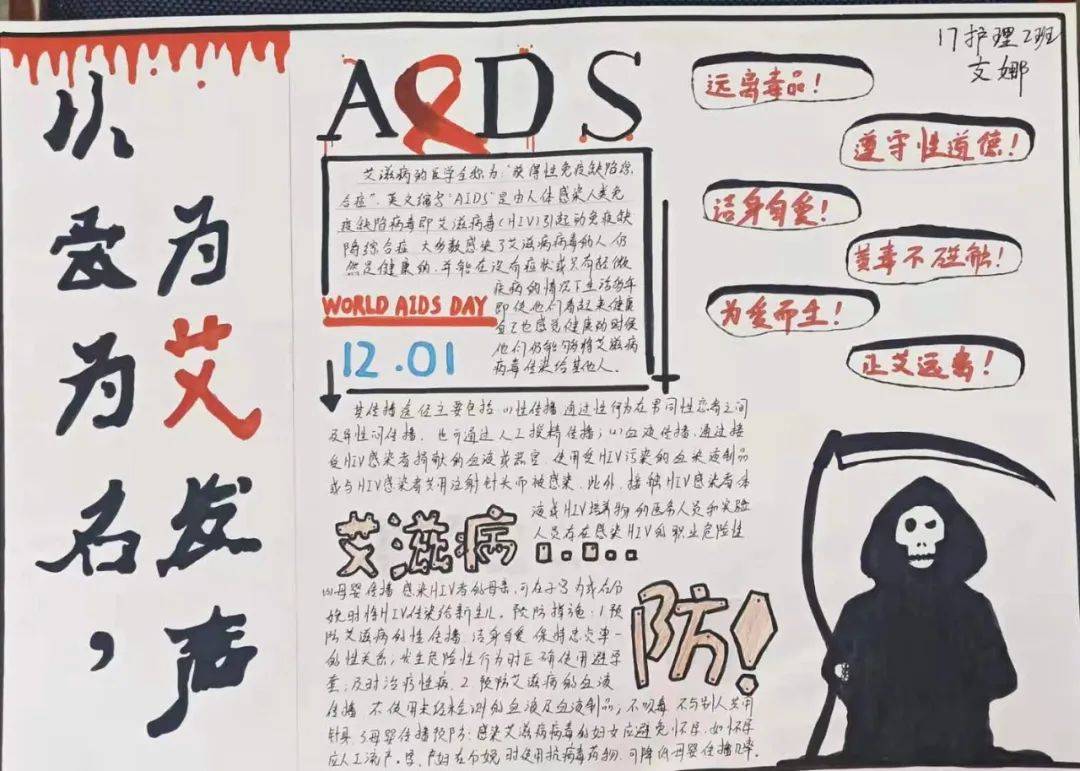 以爱为名，
为艾发声
AIDS
艾滋病的医学全称为：“获得性免疫缺陷综
合症”，英文缩写“AIDS”是由人体感染人类免
疫缺陷病毒即艾滋病毒（HIV）引起动免疫缺
陷综合症，大多数感染了艾滋病病毒的人仍
然是健康的，并能在没有症状或只有轻微
疾病的情况下生活多年
即使他们看起来健康
自己也感觉健康的时候
他们仍能够将艾滋病
病毒传染给其他人。
WORLD AIDS DAY
12.01
其传播途径主要包括 (1)性传播 通过性行为在男同性恋者之间
及异性间传播，也可通过人工授精传播；(2)血液传播，通过接
受HIV感染者捐献的血液或器官，使用受HIV污染的血来液制品
或与HIV感染者共用注射针头而被感染，此外，接触HIV感染者体
液或HIV培养物的医务人员和实验
人员存在感染HIV的职业危险性
艾滋病
(3)母婴传播 感染HIV者的母亲，可在子宫内或在分
娩时将HIV传染给新生儿。预防措施：1预
防艾滋病的性传播：洁身自爱 保持忠贞单一
的性关系；发生危险性行为时正确使用避孕
套；及时治疗性病，2.预防艾滋病的血液
传播 不使用未经检测的血液及血液制品；不吸毒 不与别人共用
针具 3母婴传播预防：感染艾滋病病毒的妇女应避免怀孕，如怀孕
应人工流产。孕、产妇在分娩时使用抗病毒药物，可降低母婴传播几率。
防！
17护理2班
文娜
远离毒品！
遵守性道德！
洁身自爱！
黄毒不碰触！
为爱而生！
正艾远离！